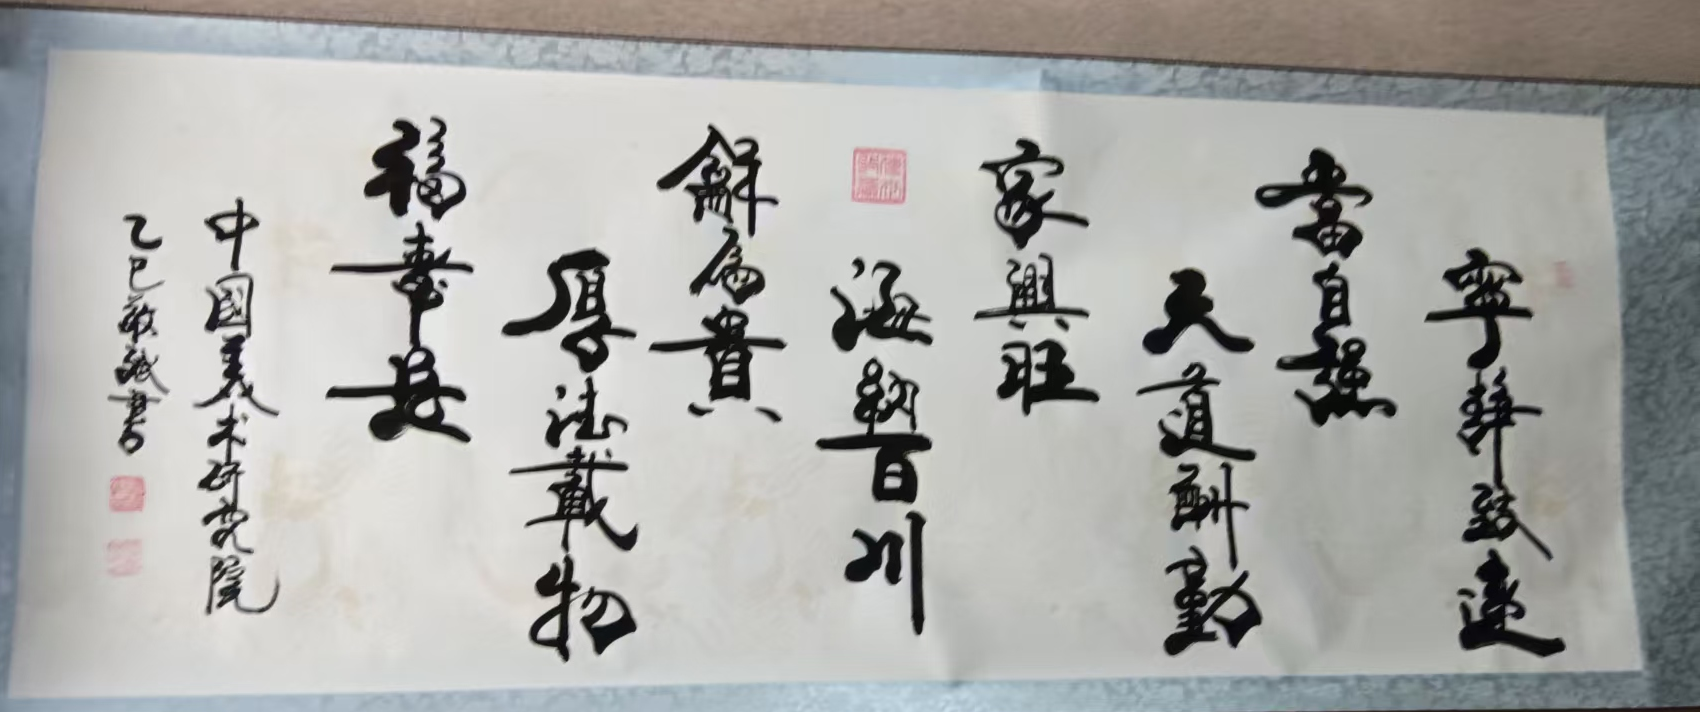 寧靜致遠
當自強
天道酬勤
家興旺
海納百川
龢為貴
厚德載物
福壽長
中國美术研究院
乙巳敬書